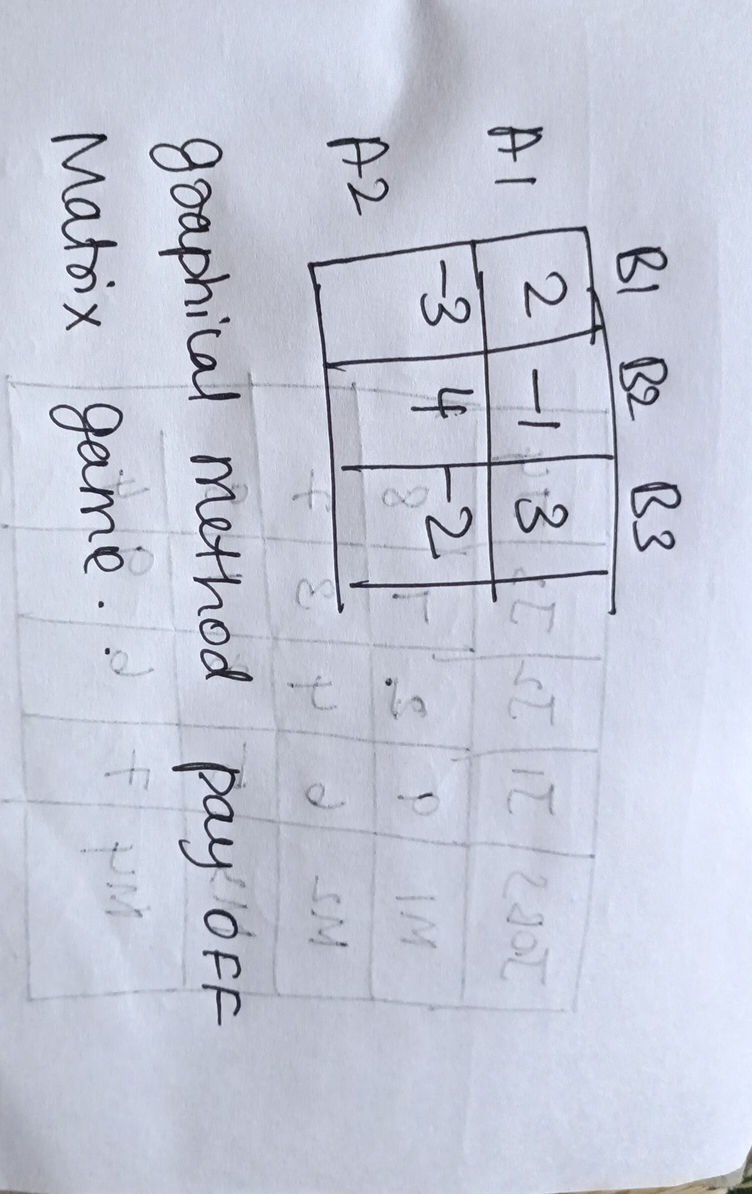 B1 B2 B3
A1 2 -1 3
A2 -3 4 -2
graphical method pay OFF
Matrix game.